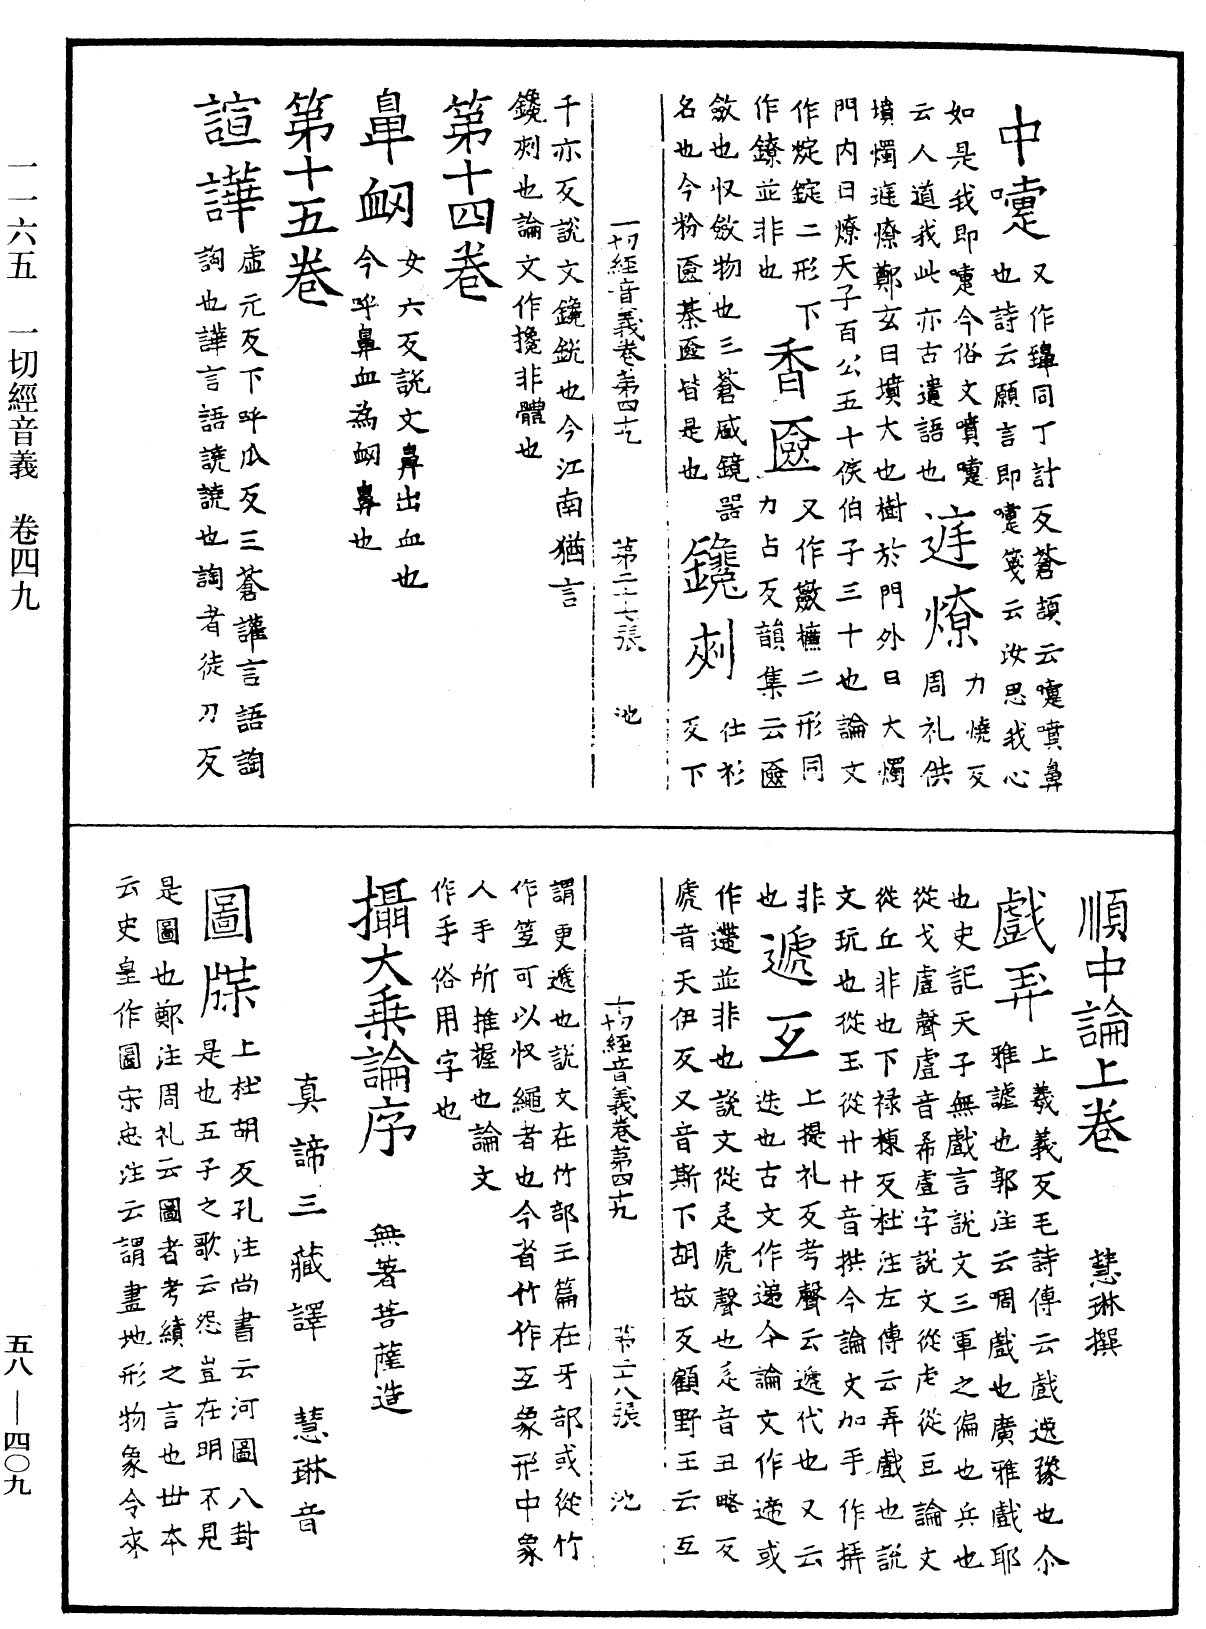 一一六五　一切經音義　卷四九
中嚏
又作𪖦同丁計反蒼頡云嚏噴鼻
也詩云願言即嚏箋云汝思我心
如是我即嚏今俗文噴嚏
云人道我此亦古遺語也
庭燎
力燒反
周礼供
墳燭庭燎鄭玄曰墳大也樹於門外曰大燭
門內曰燎天子百公五十侯伯子三十也論文
作㶜錠二形下
作鐐並非也
香匳
又作籢櫣二形同
力占反韻集云匳
斂也収斂物也三蒼盛鏡器
名也今粉匳棊匳皆是也
鑱刺
仕衫
反下
一切經音義卷第四十九　第二十七張　池
千亦反說文鑱銳也今江南猶言
鑱刺也論文作攙非體也
第十四卷
鼻衂
女六反說文鼻出血也
今呼鼻血為衂鼻也
第十五卷
諠譁
虛元反下呼瓜反三蒼讙言語譊
詢也譁言語譊譊也詢者徒刀反
順中論上卷　慧琳撰
戲弄
上羲義反毛詩傳云戲逸豫也尒
雅謔也郭注云啁戲也廣雅戲耶
也史記天子無戲言說文三軍之偏也兵也
從戈䖒聲䖒音希䖒字說文從虍從豆論文
從丘非也下祿棟反杜注左傳云弄戲也說
文玩也從玉從廾廾音拱今論文加手作挵
非也
遞互
上提礼反考聲云遞代也又云
迭也古文作递今論文作遆或
作遰並非也說文從辵虒聲也辵音丑略反
虒音天伊反又音斯下胡故反顧野王云互
一切經音義卷第四十九　第二十八張　池
謂更遞也說文在竹部玉篇在牙部或從竹
作笠可以収繩者也今省竹作互象形中象
人手所推握也論文
作手俗用字也
攝大乘論序　無著菩薩造
真諦三藏譯　慧琳音
圖牒
上杜胡反孔注尚書云河圖八卦
是也五子之歌云怨豈在明不見
是圖也鄭注周礼云圖者考績之言也世本
云史皇作圖宋忠注云謂畫地形物象令來
五八—四〇九